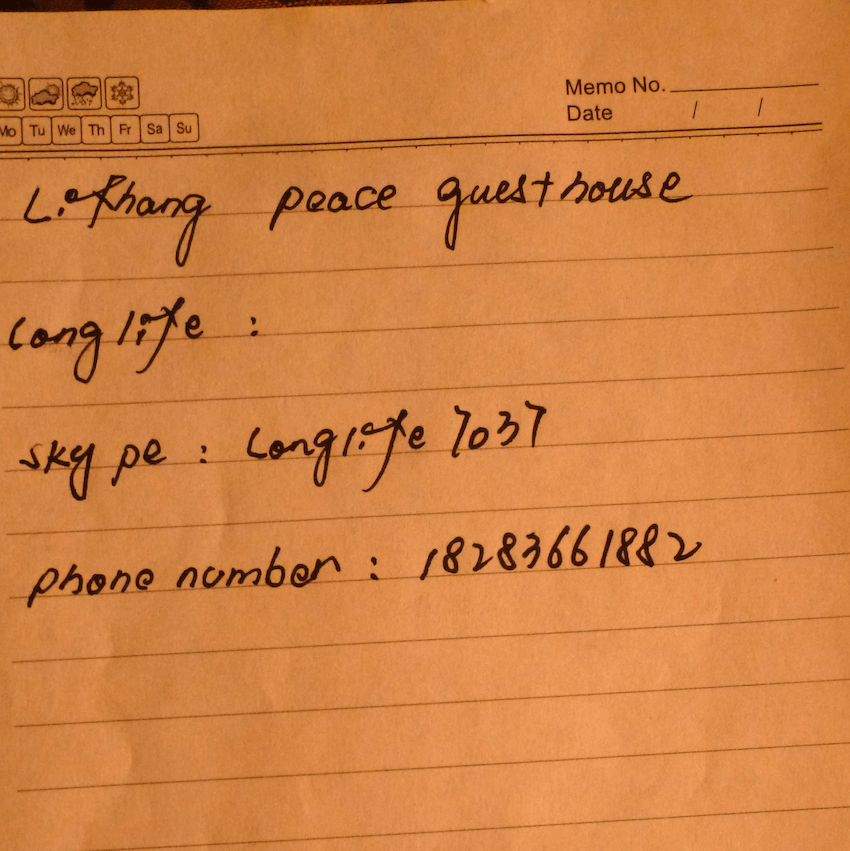 Memo No.
Date / /
Mo Tu We Th Fr Sa Su
Lithang peace guesthouse
Longlife :
skype : Longlife 7037
phone number : 18283661882